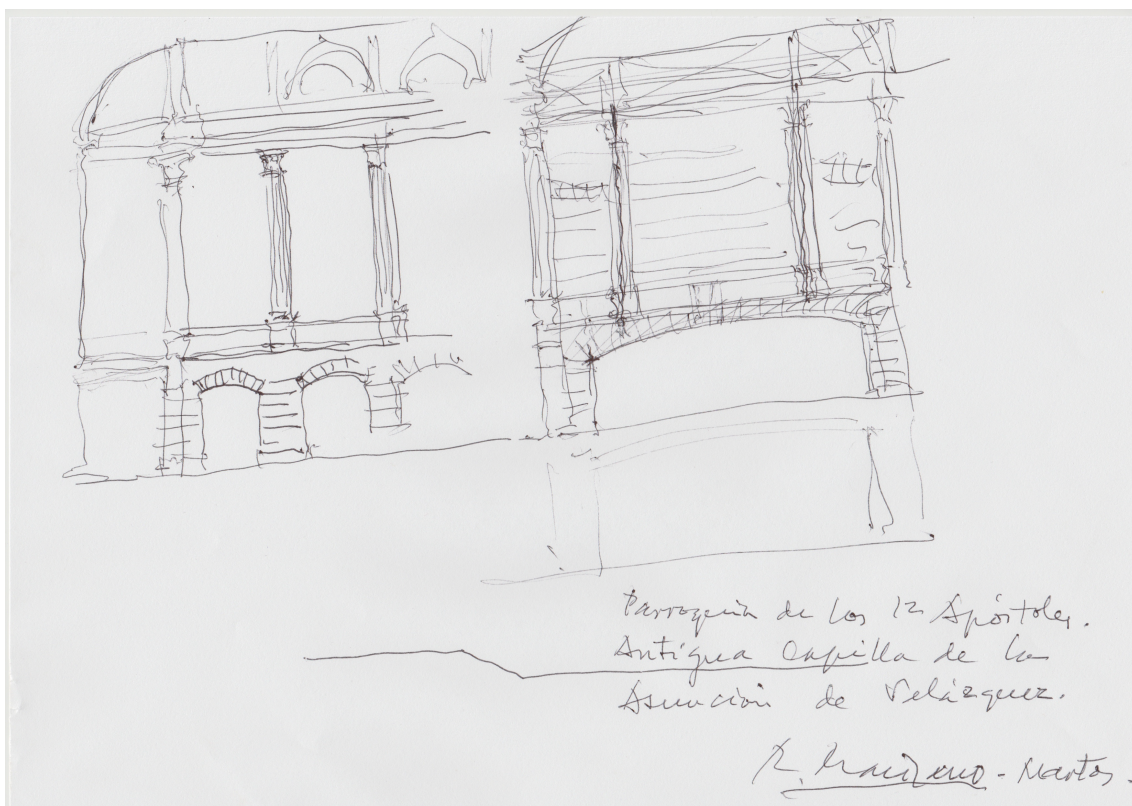 Parroquia de los 12 Apóstoles.
Antigua Capilla de la
Asunción de Velázquez.
R. Manzano - Martos.